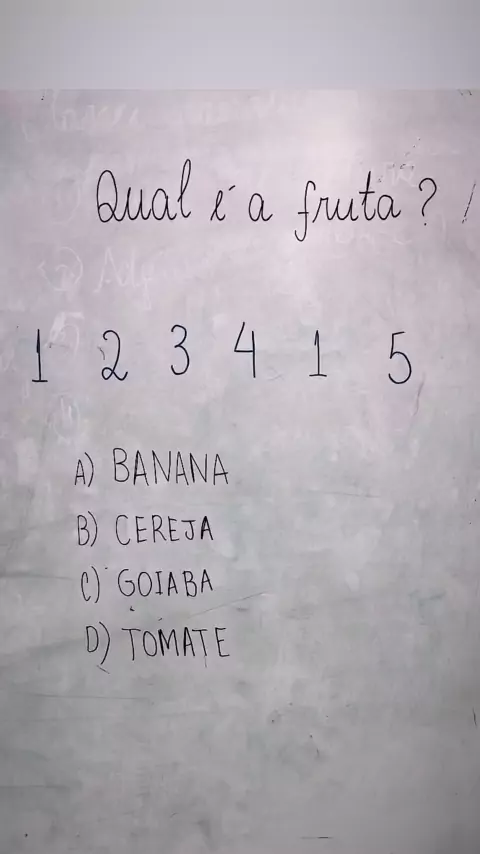 Qual é a fruta?
1 2 3 4 1 5
A) BANANA
B) CEREJA
C) GOIABA
D) TOMATE